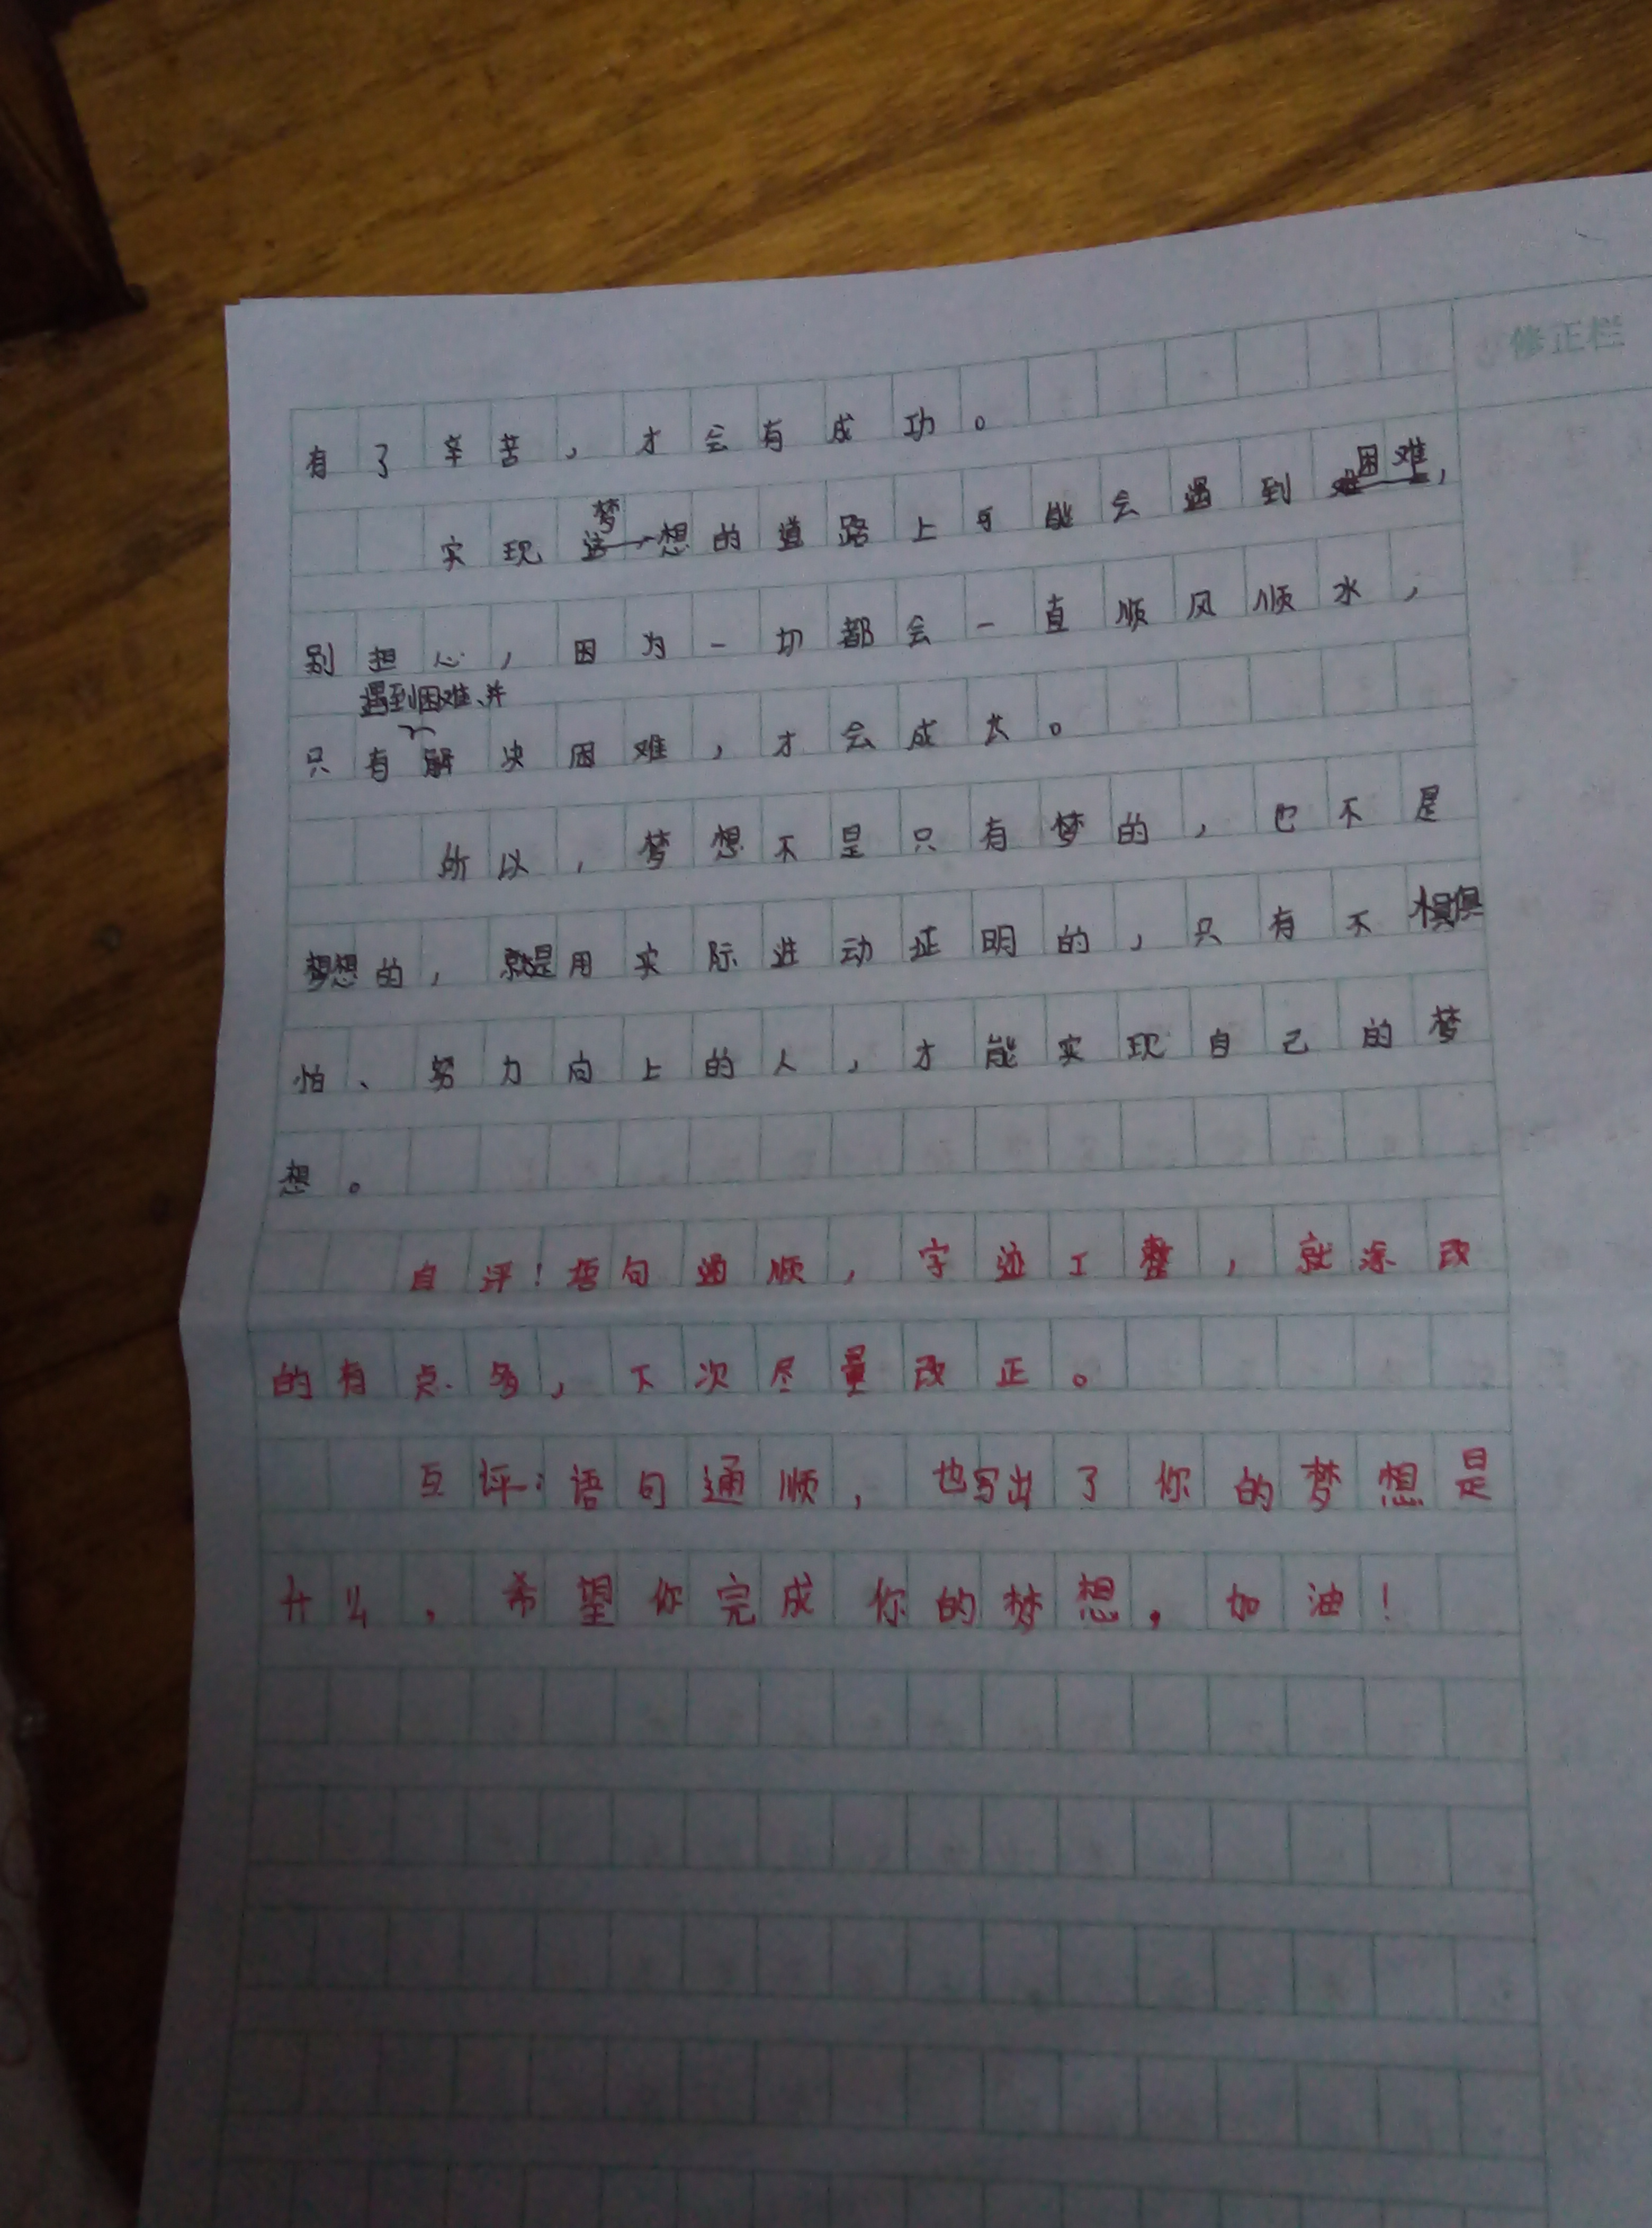 修正栏
有了辛苦，才会有成功。
实现梦想的道路上可能会遇到困难，
别担心，因为一切都会一直顺风顺水，
遇到困难、并
只有解决困难，才会成长。
所以，梦想不是只有梦的，也不是
想的，就是用实际进动证明的，只有不惧
怕、努力向上的人，才能实现自己的梦
想。
自评！语句通顺，字迹工整，就涂改
的有点多，下次尽量改正。
互评：语句通顺，也写出了你的梦想是
什么，希望你完成你的梦想，加油！